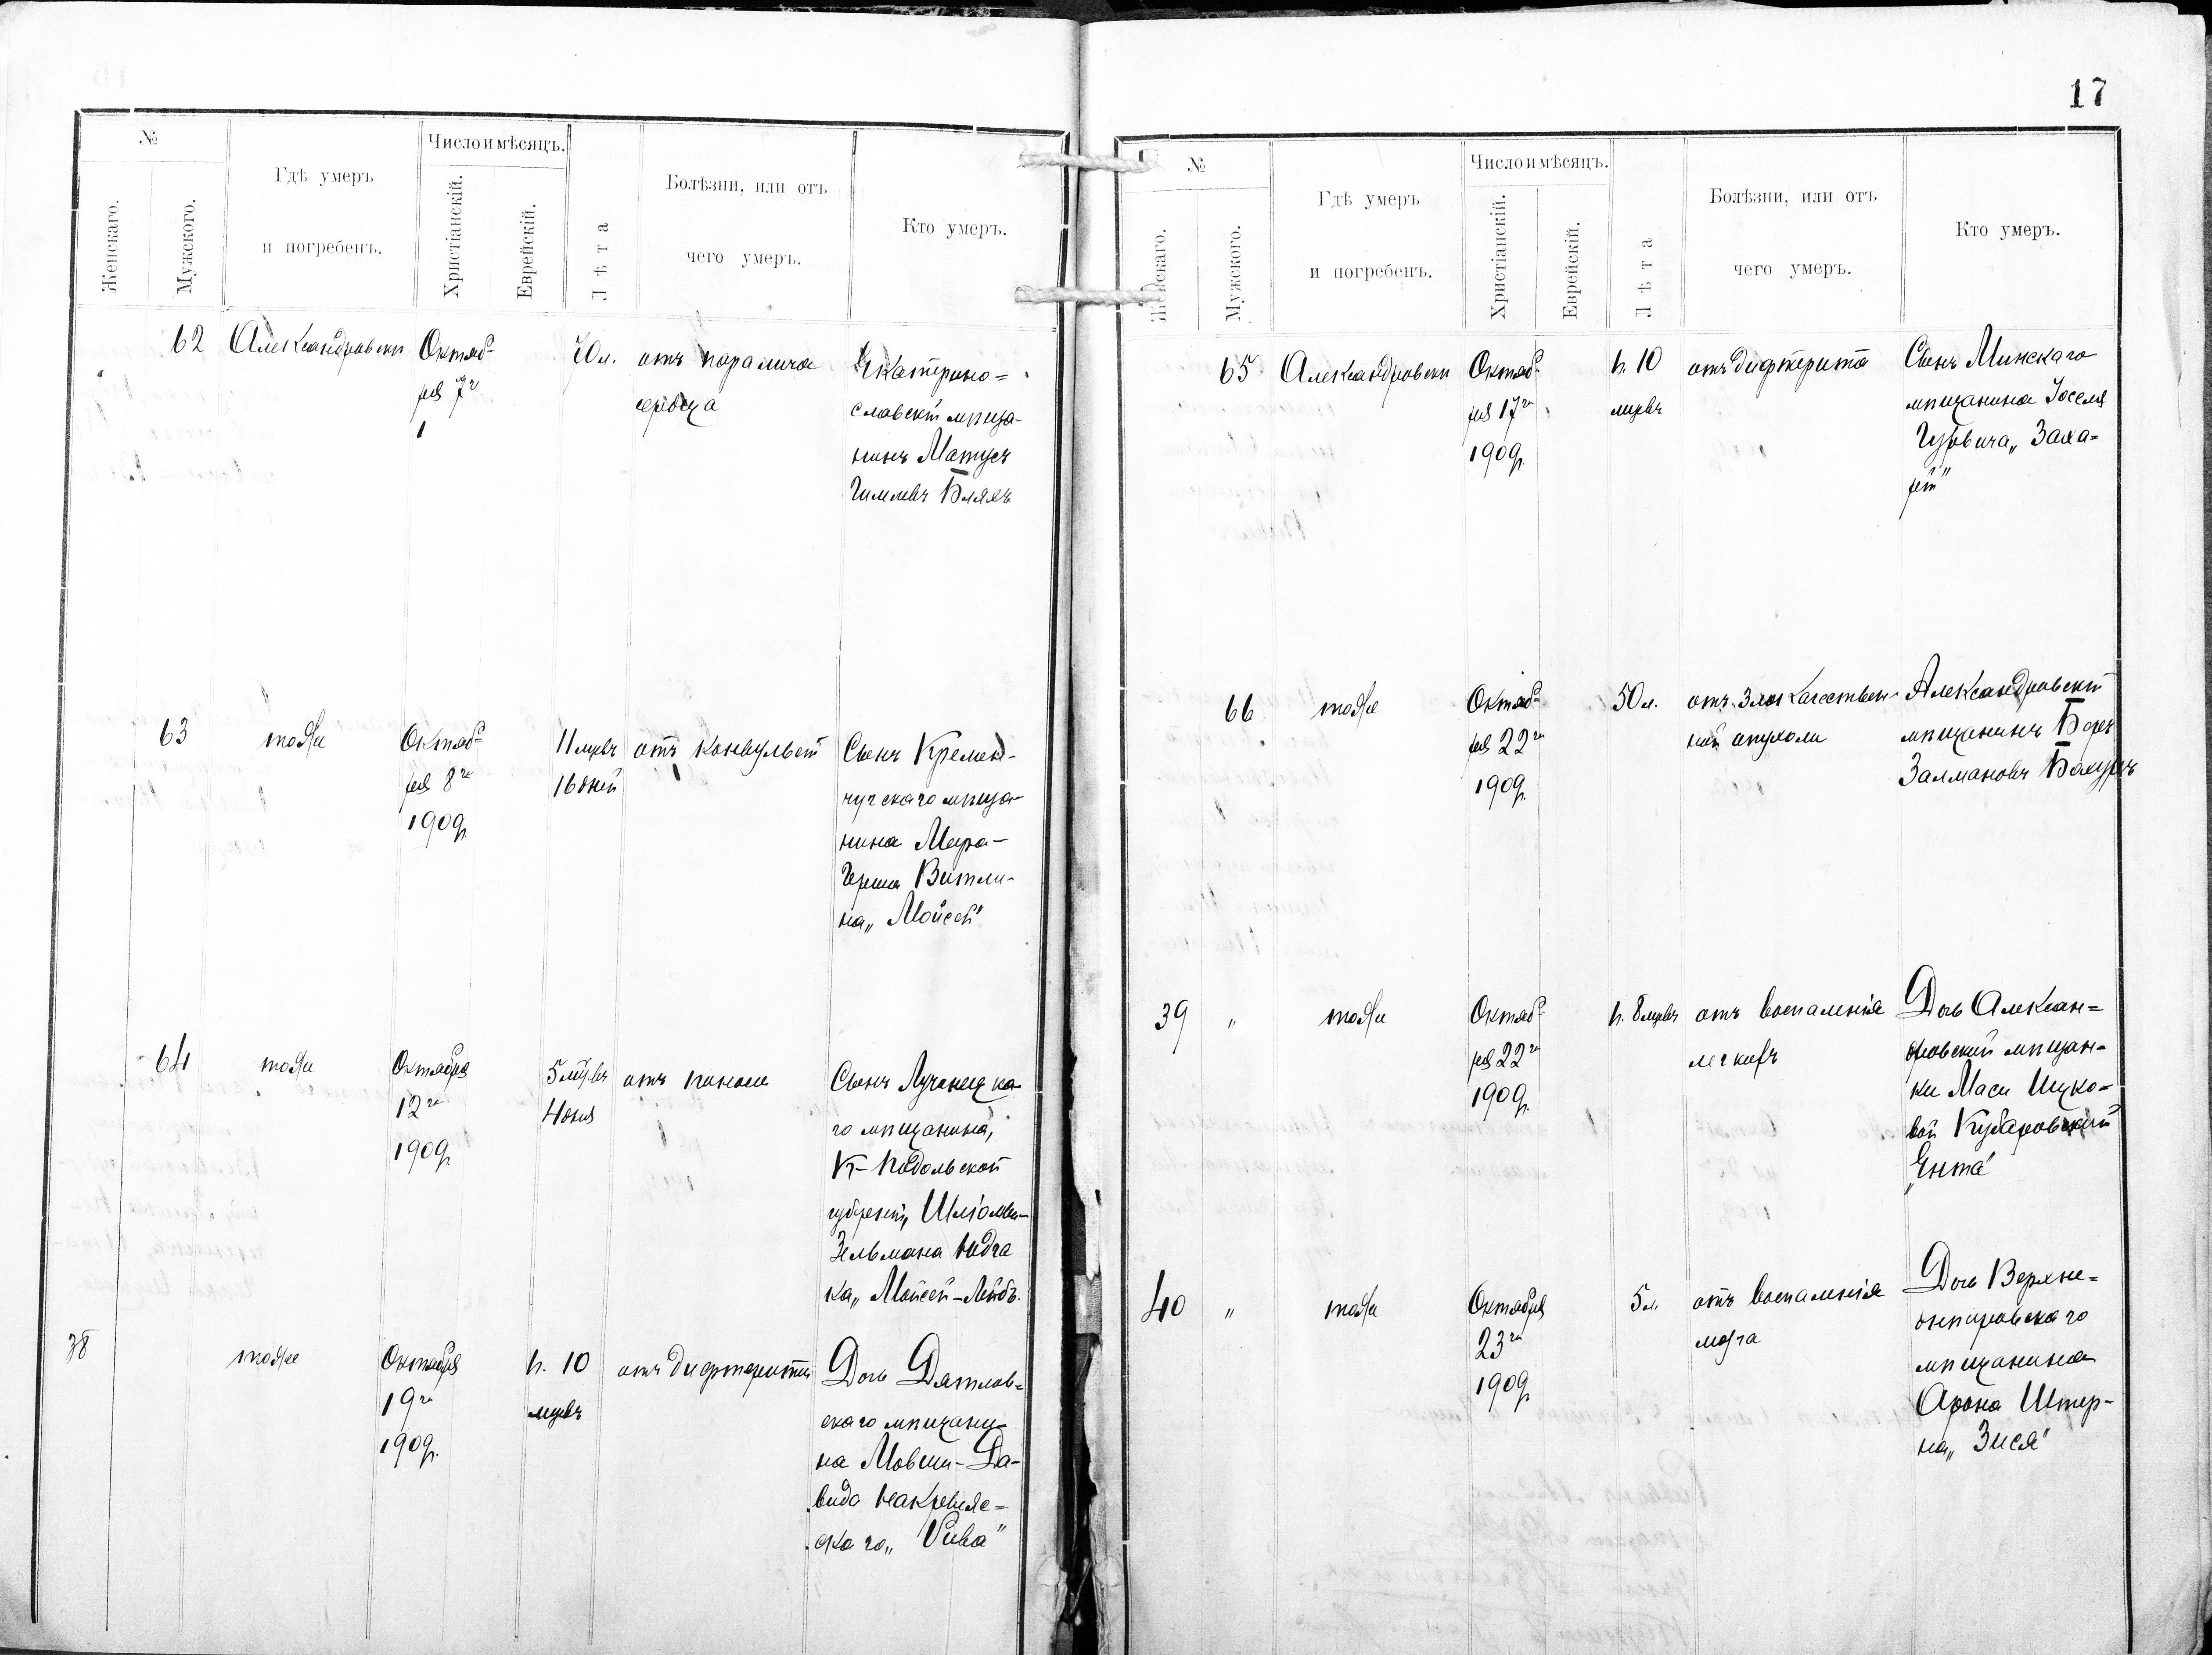 №
Женскаго.
Мужского.
Гдѣ умеръ
и погребенъ.
Число и мѣсяцъ.
Христіанскій.
Еврейскій.
Лѣта
Болѣзни, или отъ
чего умеръ.
Кто умеръ.
62 Александровск Октяб-
ря 7го
70 л.
отъ паралича
сердца
Екатерино=
славскій мѣща-
нинъ Матусъ
Бляхъ
63 тоже Октяб-
ря 8го
1909г.
11 мцевъ
16 дней
отъ конвульсій
Сынъ Кремен-
чугскаго мѣща-
нина Меера-
Герша Витли-
на „Мойсей"
64 тоже Октября
12го
1909г.
5 мцевъ
4 дня
отъ поноса
Сынъ
го мѣщанина,
К-Подольской
губерніи, Шліомы-
Зельмана
ка „Мойсей-Лейбъ.
38 тоже Октября
19го
1909г.
10
мцевъ
отъ дифтерита
Дочь Дятлов=
скаго мѣщани-
на Мовши-Да-
вида
скаго „Рива"
17
№
Женскаго.
Мужского.
Гдѣ умеръ
и погребенъ.
Число и мѣсяцъ.
Христіанскій.
Еврейскій.
Лѣта
Болѣзни, или отъ
чего умеръ.
Кто умеръ.
65 Александровск Октяб-
ря 17го
1909г.
10
мцевъ
отъ дифтерита
Сынъ Минскаго
мѣщанина Іоселя
Гурвича „Заха=
рій"
66 тоже Октяб-
ря 22го
1909г.
50 л.
отъ злокачествен-
ной опухоли
Александровскій
мѣщанинъ Борехъ
Залмановъ
39 " тоже Октяб-
ря 22го
1909г.
8 мцевъ
отъ воспаленія
легкихъ
Дочь Алексан=
дровской мѣщан-
ки Маси Ицко-
вой
„Ента"
40 " тоже Октября
23го
1909г.
5 л.
отъ воспаленія
мозга
Дочь Верхне=
днѣпровскаго
мѣщанина
Арона Штер-
на „Зися"